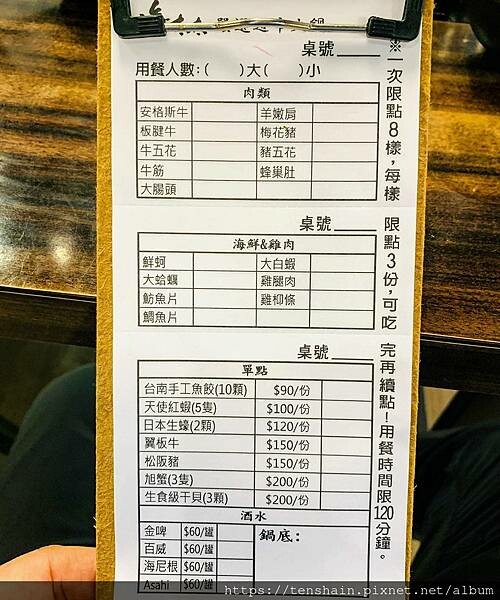 桌號
用餐人數：（　）大（　）小
肉類
安格斯牛 羊嫩肩
板腱牛 梅花豬
牛五花 豬五花
牛筋 蜂巢肚
大腸頭
桌號
海鮮&雞肉
鮮蚵 大白蝦
大蛤蠣 雞腿肉
魴魚片 雞柳條
鯛魚片
桌號
單點
台南手工魚餃(10顆) $90/份
天使紅蝦(5隻) $100/份
日本生蠔(2顆) $120/份
翼板牛 $150/份
松阪豬 $150/份
旭蟹(3隻) $200/份
生食級干貝(3顆) $200/份
酒水
金啤 $60/罐 鍋底：
百威 $60/罐
海尼根 $60/罐
Asahi $60/罐
※一次限點8樣，每樣限點3份，可吃完再續點！用餐時間限120分鐘。
https://tenshain.pixnet.net/album